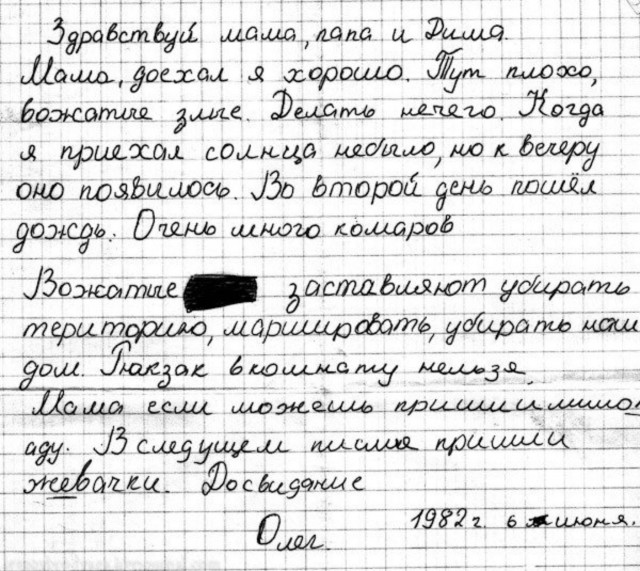 Здравствуй мама, папа и Дима.
Мама, доехал я хорошо. Тут плохо,
вожатые злые. Делать нечего. Когда
я приехал солнца небыло, но к вечеру
оно появилось. Во второй день пошёл
дождь. Очень много комаров
Вожатые заставляют убирать
територию, маршировать, убирать наш
дом. Рюкзак вкомнату нельзя.
Мама если можешь пришли лимон
аду. В следущем письме пришли
жевачки. Досвидание
1982 г. 6 июня.
Олег.